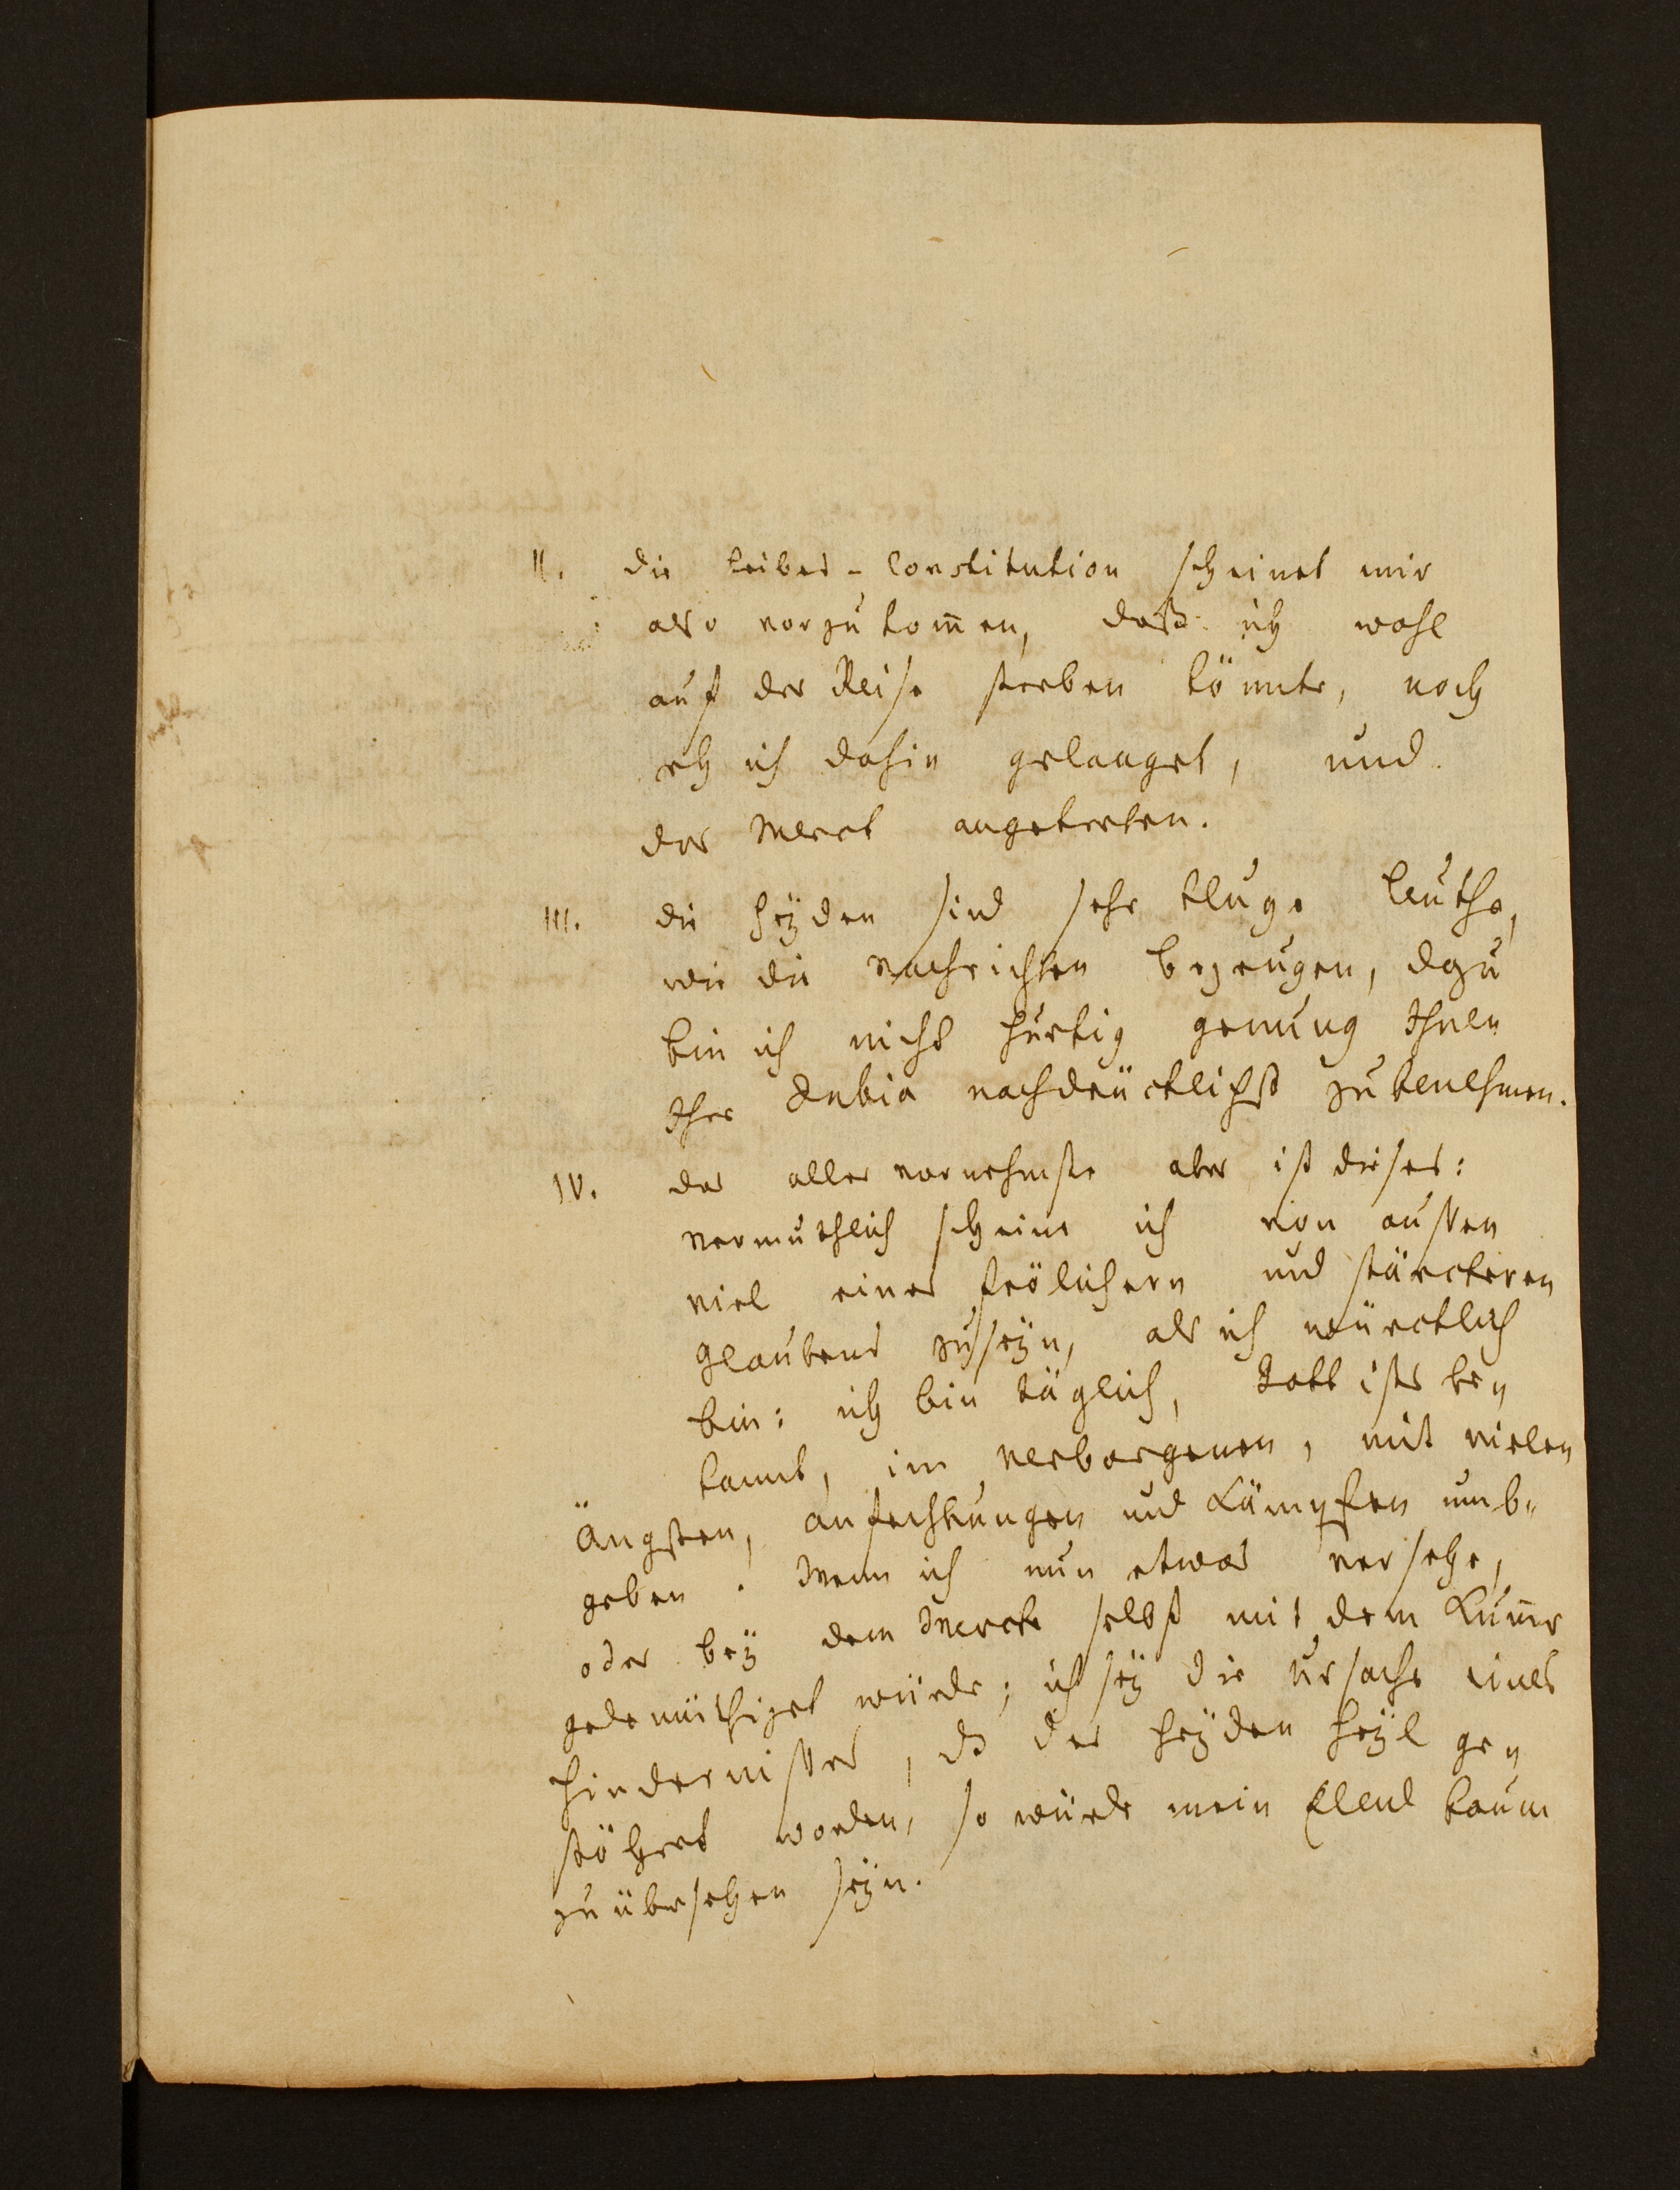 II. die Leibes-Constitution scheinet mir
also vorzukom̅en, daß ich wohl
auf der Reise sterben könnte, noch
eh ich dahin gelanget, und
das Werck angetreten.
III. die Heÿden sind sehr kluge Leuthe,
wie die Nachrichten bezeugen, dazu
bin ich nicht hurtig genung Ihnen
Ihre Dubia nachdrücklichst zu benehmen.
IV. das aller vornehmste aber ist dieses:
Vermuthlich scheine ich von aussen
viel eines frölichern und stärckeren
Glaubens zu seÿn, als ich würcklich
bin: ich bin täglich, Gott ists be-
kannt, im verborgenen, mit vielen
Ängsten, anfechtungen und Kämpfen umb-
geben. Wenn ich nun etwas versehe,
oder beÿ dem Wercke selbst mit dem Kum̅er
gedemüthiget würde; ich seÿ die Ursache eines
Hindernisses, dß der Heÿden Heÿl ge-
stöhret worden, so würde mein Elend kaum
zu übersehen seÿn.